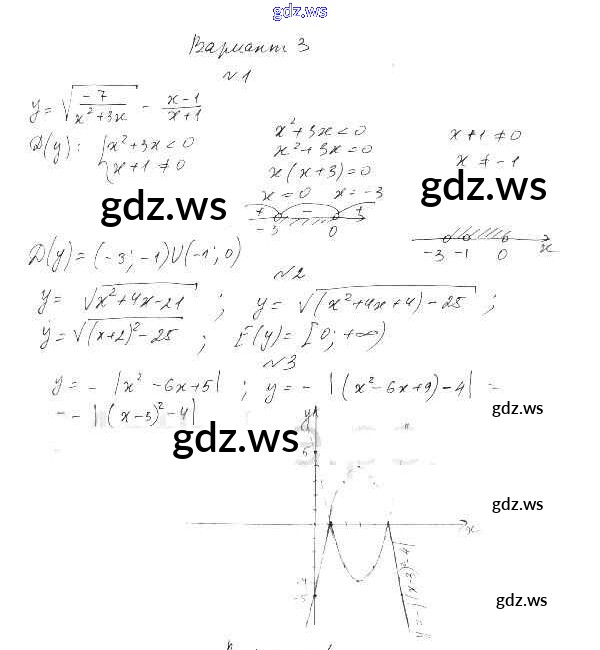 gdz.ws
Вариант 3
№1
y = √(-7/(x²+3x)) - (x-1)/(x+1)
D(y): { x²+3x<0
x+1≠0
x²+3x<0
x²+3x=0
x(x+3)=0
x=0 x=-3
+ - +
-3 0
x+1≠0
x≠-1
-3 -1 0 x
gdz.ws
gdz.ws
D(y) = (-3; -1)∪(-1; 0)
№2
y = √(x²+4x-21) ; y = √((x²+4x+4)-25) ;
y = √((x+2)²-25) ; E(y) = [0; +∞)
№3
y = -|x²-6x+5| ; y = -|(x²-6x+9)-4| =
= -|(x-3)²-4|
gdz.ws
gdz.ws
y
5
x
-4
-5
y=-|(x-3)²-4|
gdz.ws
gdz.ws